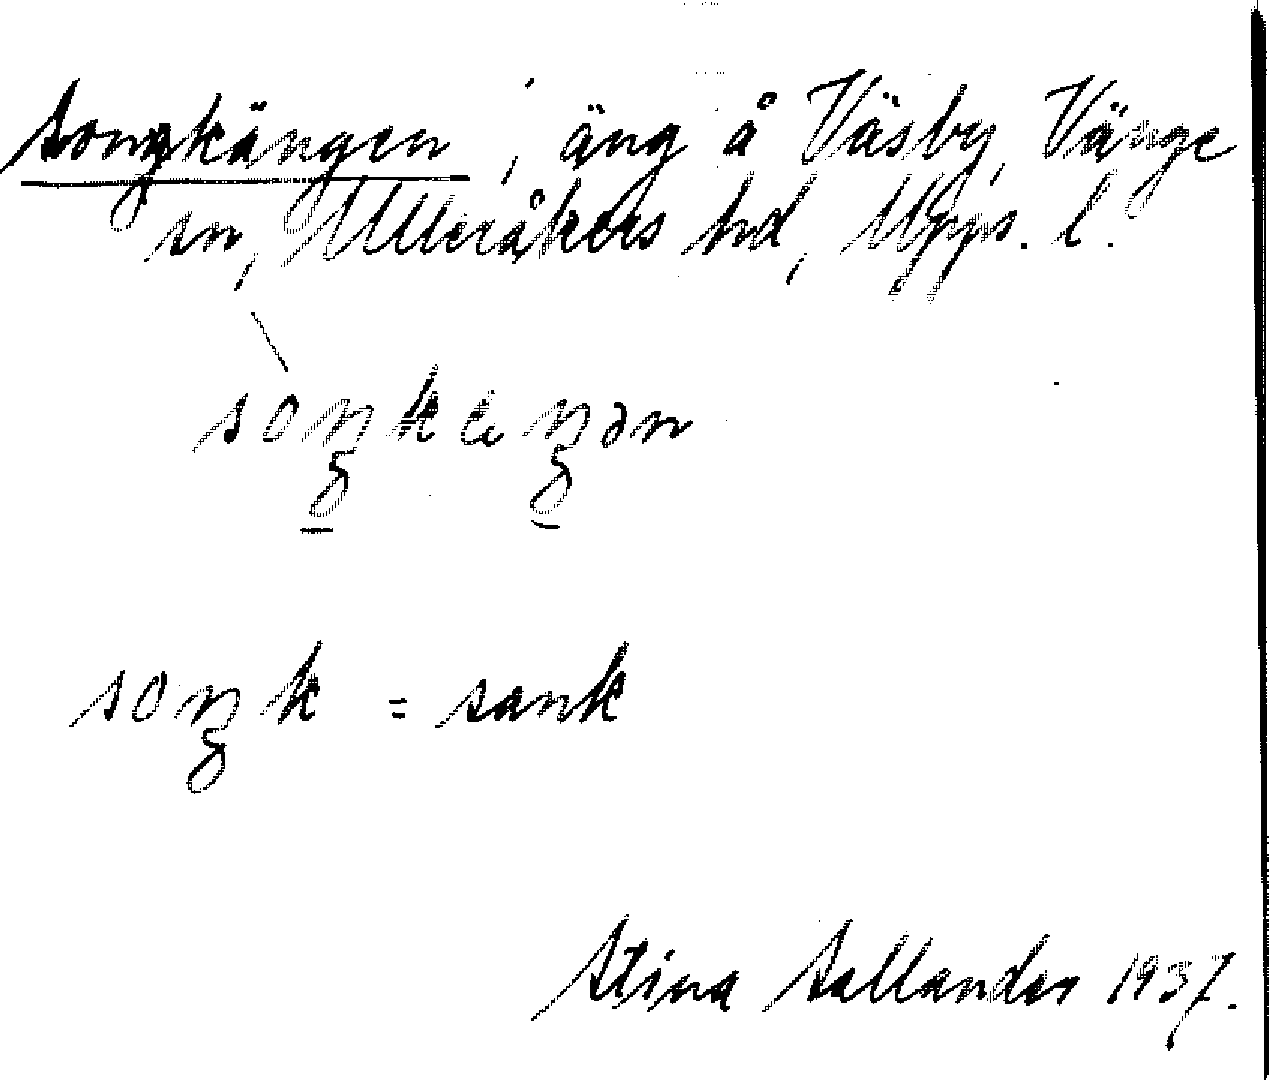 Songkängen, äng å Väsby, Vänge
sn, Ulleråkers hd, Upps. l.
soŋkäŋən
soŋk = sank
Stina Sallander 1937.